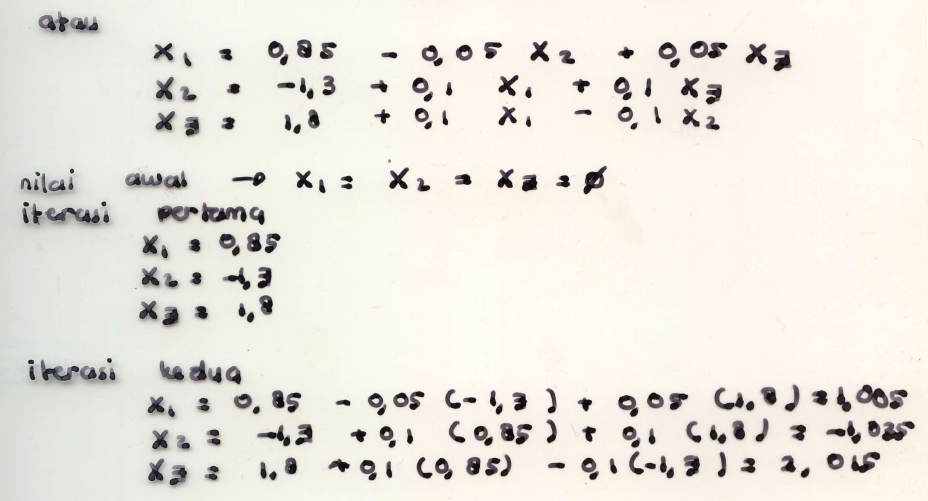 atau
X₁ = 0,85 - 0,05 X₂ + 0,05 X₃
X₂ = -1,3 + 0,1 X₁ + 0,1 X₃
X₃ = 1,8 + 0,1 X₁ - 0,1 X₂
nilai awal → X₁ = X₂ = X₃ = ∅
iterasi pertama
X₁ = 0,85
X₂ = -1,3
X₃ = 1,8
iterasi kedua
X₁ = 0,85 - 0,05 (-1,3) + 0,05 (1,8) = 1,005
X₂ = -1,3 + 0,1 (0,85) + 0,1 (1,8) = -1,035
X₃ = 1,8 + 0,1 (0,85) - 0,1 (-1,3) = 2,015